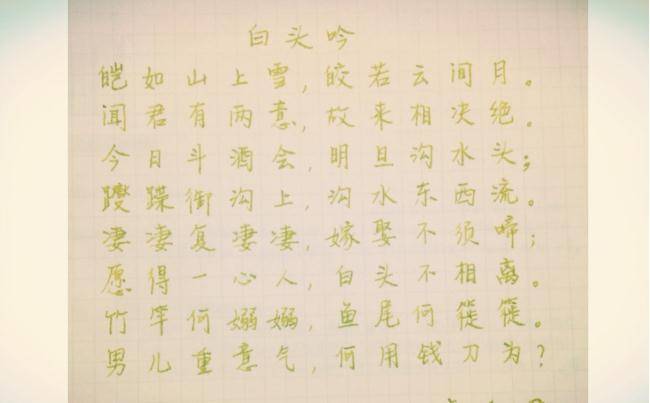 白头吟
皑如山上雪,皎若云间月。
闻君有两意,故来相决绝。
今日斗酒会,明旦沟水头;
躞蹀御沟上,沟水东西流。
凄凄复凄凄,嫁娶不须啼;
愿得一心人,白头不相离。
竹竿何嫋嫋,鱼尾何簁簁。
男儿重意气,何用钱刀为?